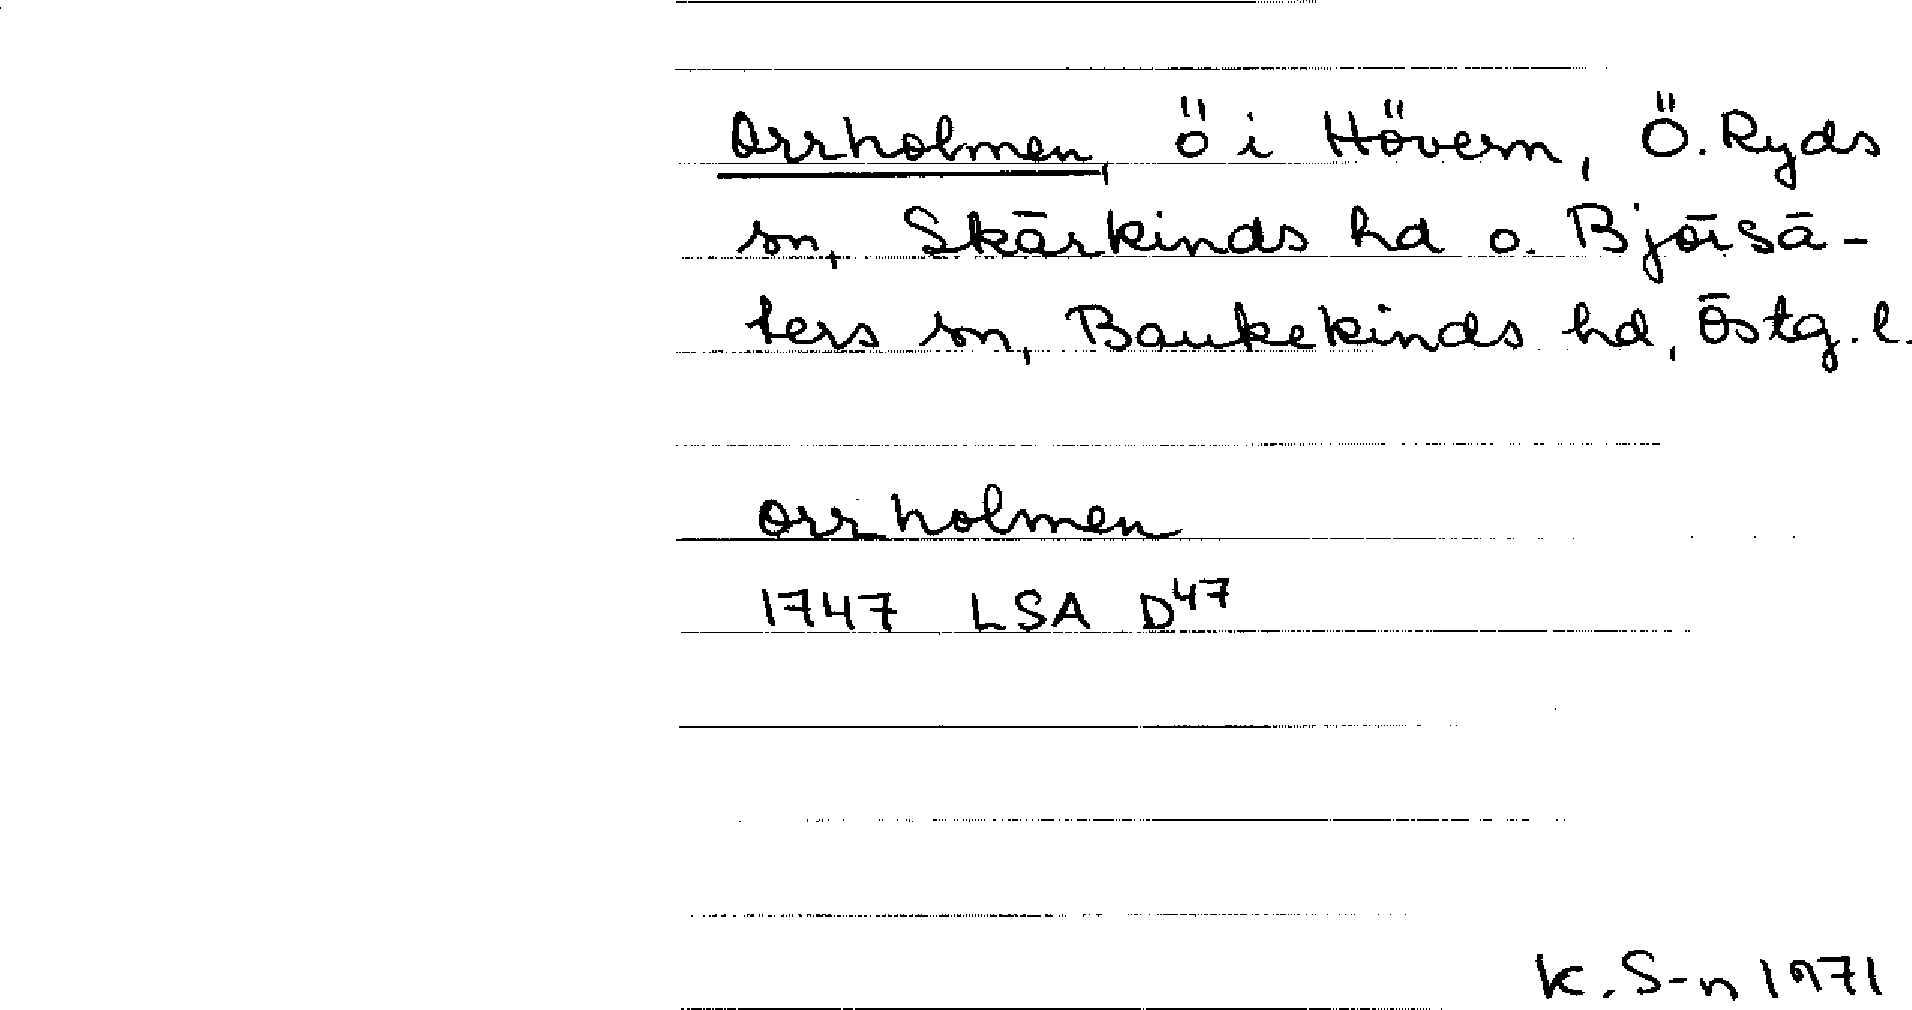 Orrholmen, ö i Hövern, Ö. Ryds
sn, Skärkinds hd o. Björsä-
ters sn, Bankekinds hd, Östg. l.
orrholmen
1747 LSA D47
K. S-n 1971